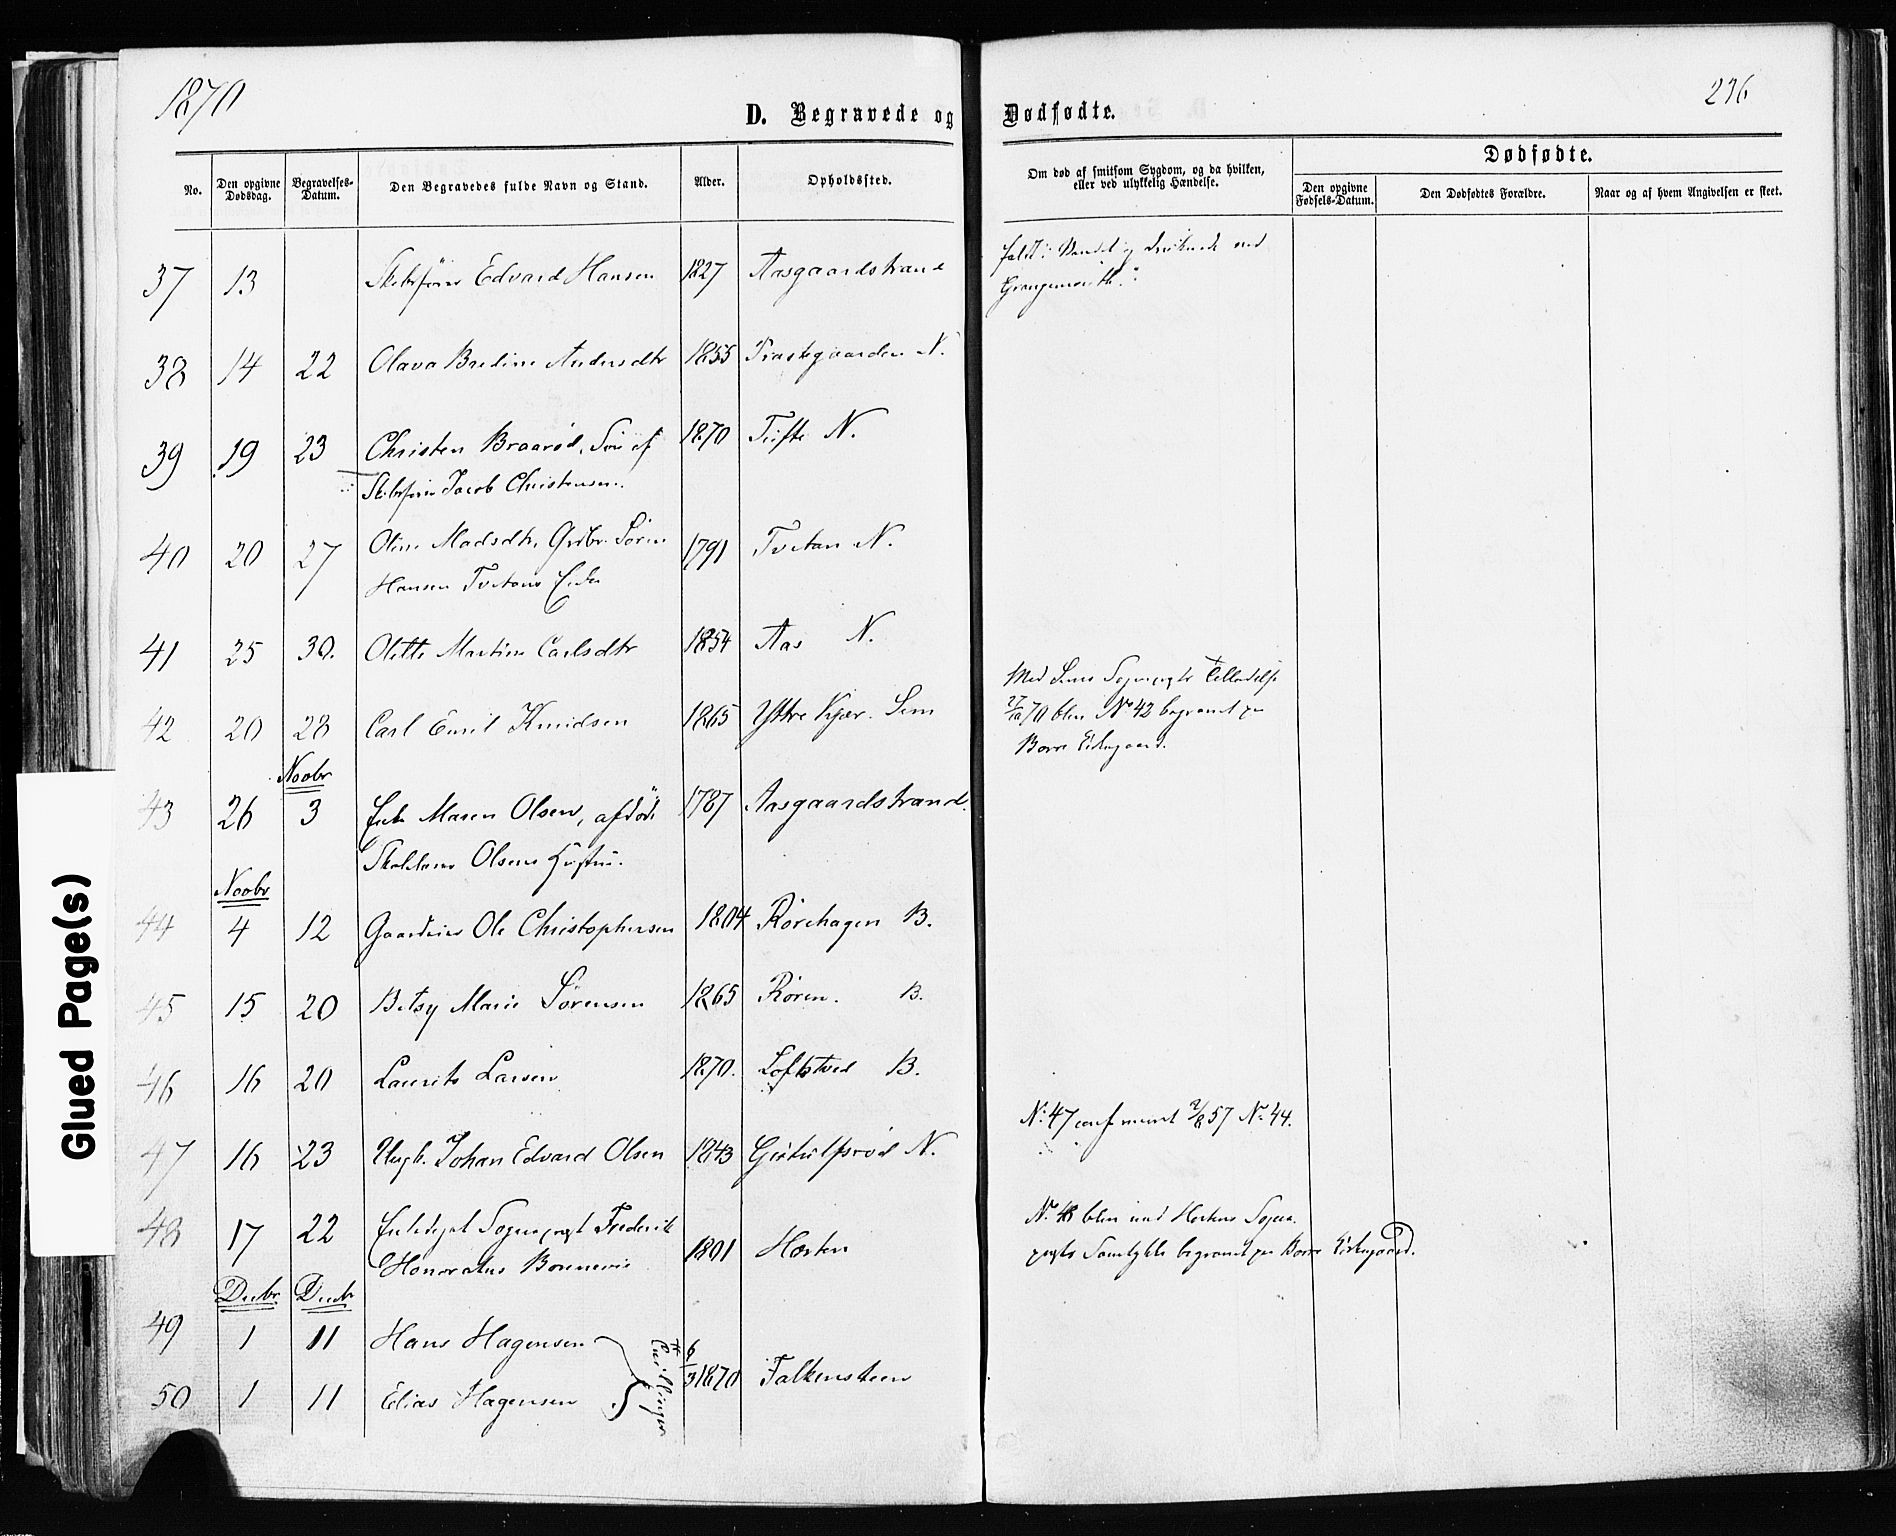 1870
236
D. Begravede og Dødfødte.
No.
Den opgivne Dødsdag.
Begravelses-Datum.
Den Begravedes fulde Navn og Stand.
Alder.
Opholdssted.
Om død af smitsom Sygdom, og da hvilken, eller ved ulykkelig Hændelse.
Dødfødte.
Den opgivne Fødsels-Datum.
Den Dødfødtes Forældre.
Naar og af hvem Angivelsen er skeet.
37 13 Skibsfører Edvard Hansen 1827 Aasgaardstrand
faldt i Vandet og druknede ved
38 14 22 Olava Bredine Andersdtr 1855 Præstegaarden N.
39 19 23 Christen Braarød, Søn af 1870 Tufte N.
Skibsfører Jacob Christensen.
40 20 27 Oline Madsdtr, Grdbr. Søren 1791 Tvetan N.
Hansen Tvetans Enke
41 25 30. Olette Martine Carlsdtr 1854 Aas N.
42 20 28 Carl Emil Knudsen 1865 Yttre Kjær. Sem
Med Sems Sognepræsts Tilladelse
27/10 70 blev No 42 begravet paa
Borre Kirkegaard.
Novbr
43 26 3 Enke Maren Olsen, afdøde 1787 Aasgaardstrand.
Olsens Hustru.
Novbr
44 4 12 Gaardeier Ole Christophersen 1804 Rørehagen B.
45 15 20 Betsy Marie Sørensen 1865 Røren. B.
46 16 20 Laurits Larsen 1870. Loftstved B.
47 16 23 Ungk. Johan Edvard Olsen 1843 N.
No. 47 conf 57 No. 44.
48 17 22 Sognepræst Frederik
Honoratus Bonnevie 1801 Horten
No. 48 blev med Hortens Sogne-
præsts Samtykke begravet paa Borre Kirkegaard.
Decbr Decbr
49 1 11 Hans Hagensen
50 1 11 Elias Hagensen
Tvillinger
1870 Falkensteen
Glued Page(s)